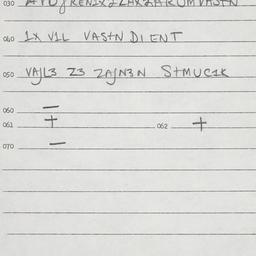 030
040 1X V1L VASTN DI ENT
050 VAJL3 Z3 ZAJN3N STMUC1K
060 —
061 + 062 +
070 —